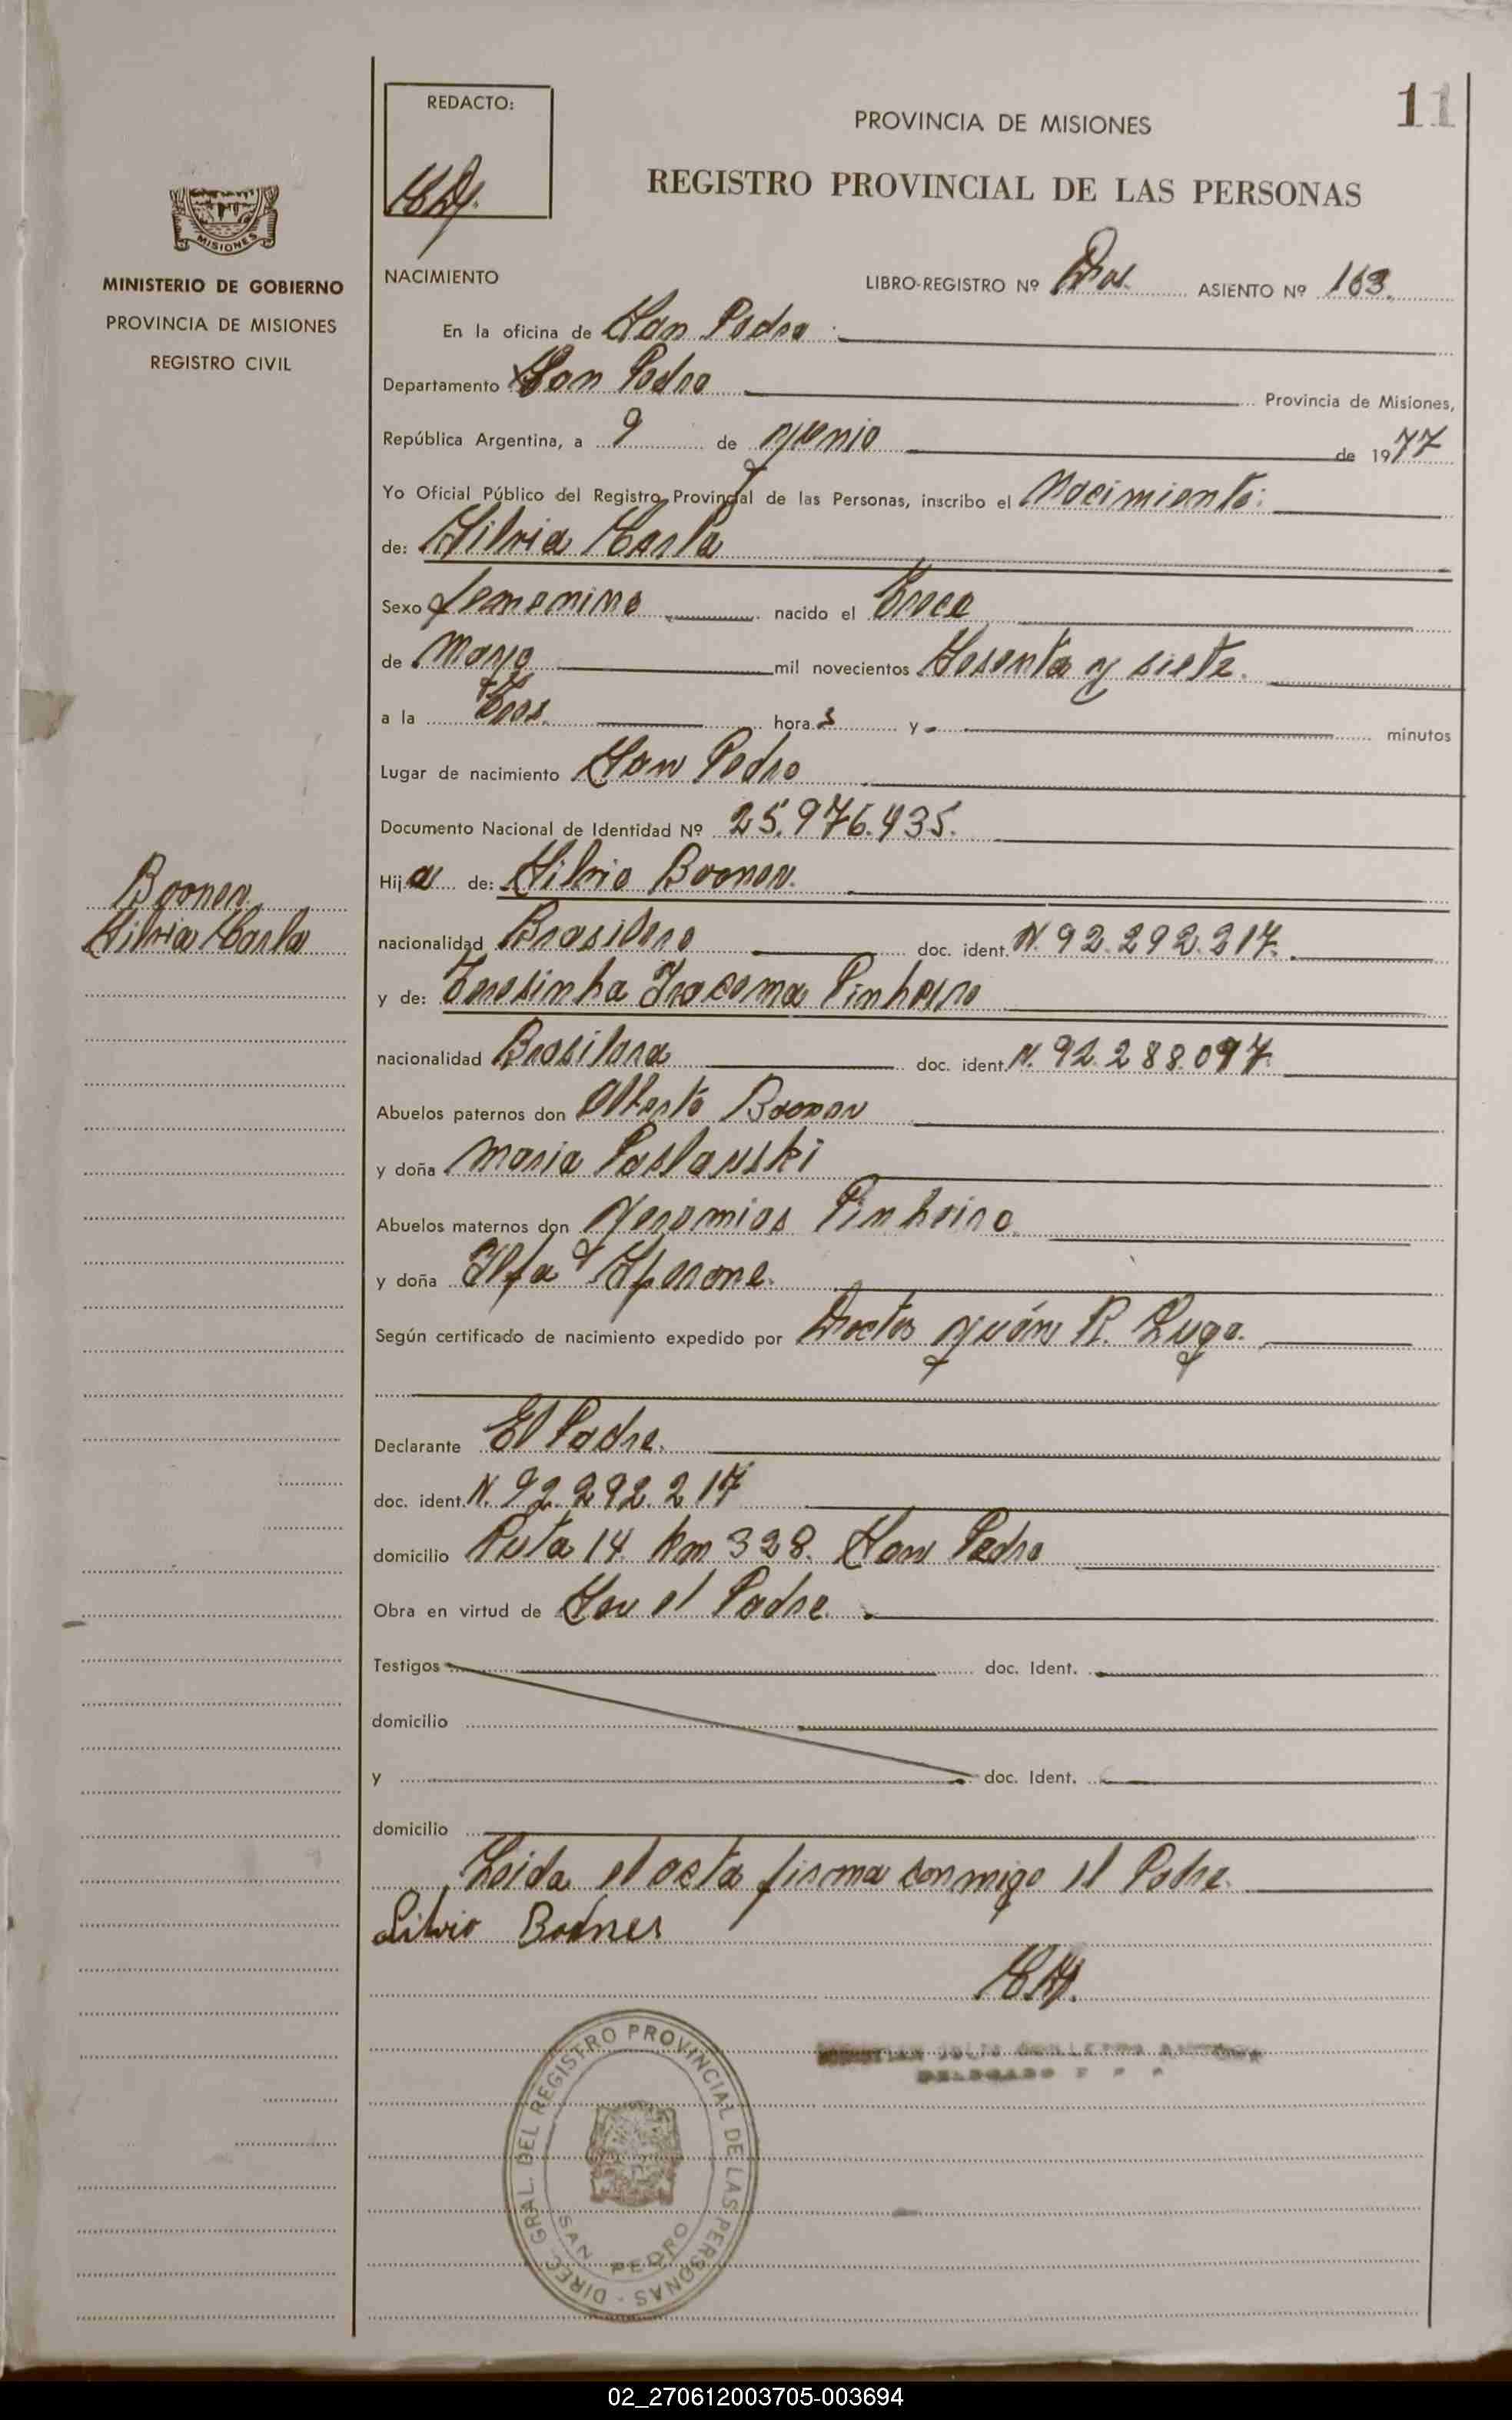 REDACTO:
11
PROVINCIA DE MISIONES
REGISTRO PROVINCIAL DE LAS PERSONAS
MISIONES
MINISTERIO DE GOBIERNO
PROVINCIA DE MISIONES
REGISTRO CIVIL
NACIMIENTO LIBRO-REGISTRO Nº Dos. ASIENTO Nº 163.
En la oficina de San Pedro
Departamento San Pedro Provincia de Misiones,
República Argentina, a 9 de junio de 1977
Yo Oficial Público del Registro Provincial de las Personas, inscribo el Nacimiento:
de: Silvia Carla
Sexo femenino nacido el Trece
de mayo mil novecientos Setenta y siete.
a la Tres. hora s y minutos
Lugar de nacimiento San Pedro
Documento Nacional de Identidad Nº 25.976.935.
Hij a de: Silvio Boonen.
nacionalidad Brasilero doc. ident. N. 92.292.217.
y de: Teresinha Iracema Pinheiro
nacionalidad Brasilera doc. ident. N. 92.288.097.
Boonen
Silvia Carla
Abuelos paternos don Alberto Boonen
y doña Maria Paslauski
Abuelos maternos don Jeremias Pinheiro
y doña
Según certificado de nacimiento expedido por Doctor Juán R. Lugo.
Declarante El Padre.
doc. ident. N. 92.292.217
domicilio Ruta 14 km 328. San Pedro
Obra en virtud de Ser el Padre.
Testigos doc. Ident.
domicilio
y doc. Ident.
domicilio
Leida el acta firma conmigo el Padre.
Silvio Boonen
DELEGADO
DIREC. GRAL. DEL REGISTRO PROVINCIAL DE LAS PERSONAS -
SAN PEDRO
02_270612003705-003694